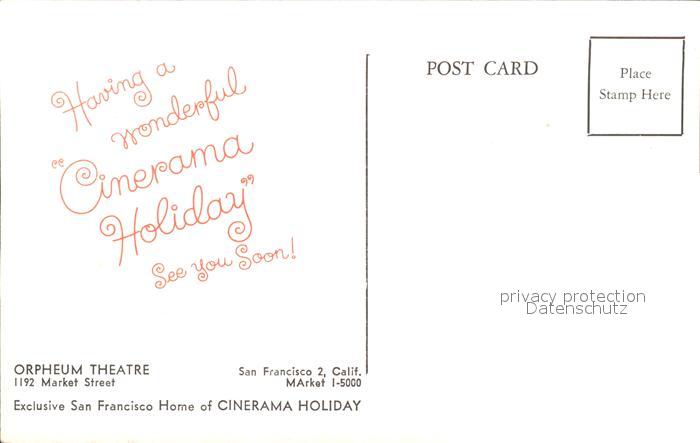 Having a
wonderful
"Cinerama
Holiday"
See you Soon!
ORPHEUM THEATRE
1192 Market Street
San Francisco 2, Calif.
MArket 1-5000
Exclusive San Francisco Home of CINERAMA HOLIDAY
POST CARD
Place
Stamp Here
privacy protection
Datenschutz